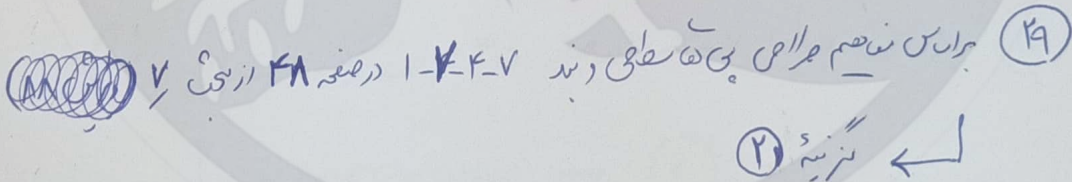 ۲۹ براساس مفاهیم طراحی پی‌های سطحی و بند ۷-۴-۷-۱ در صفحه ۴۸ از مبحث ۷
گزینه ۲